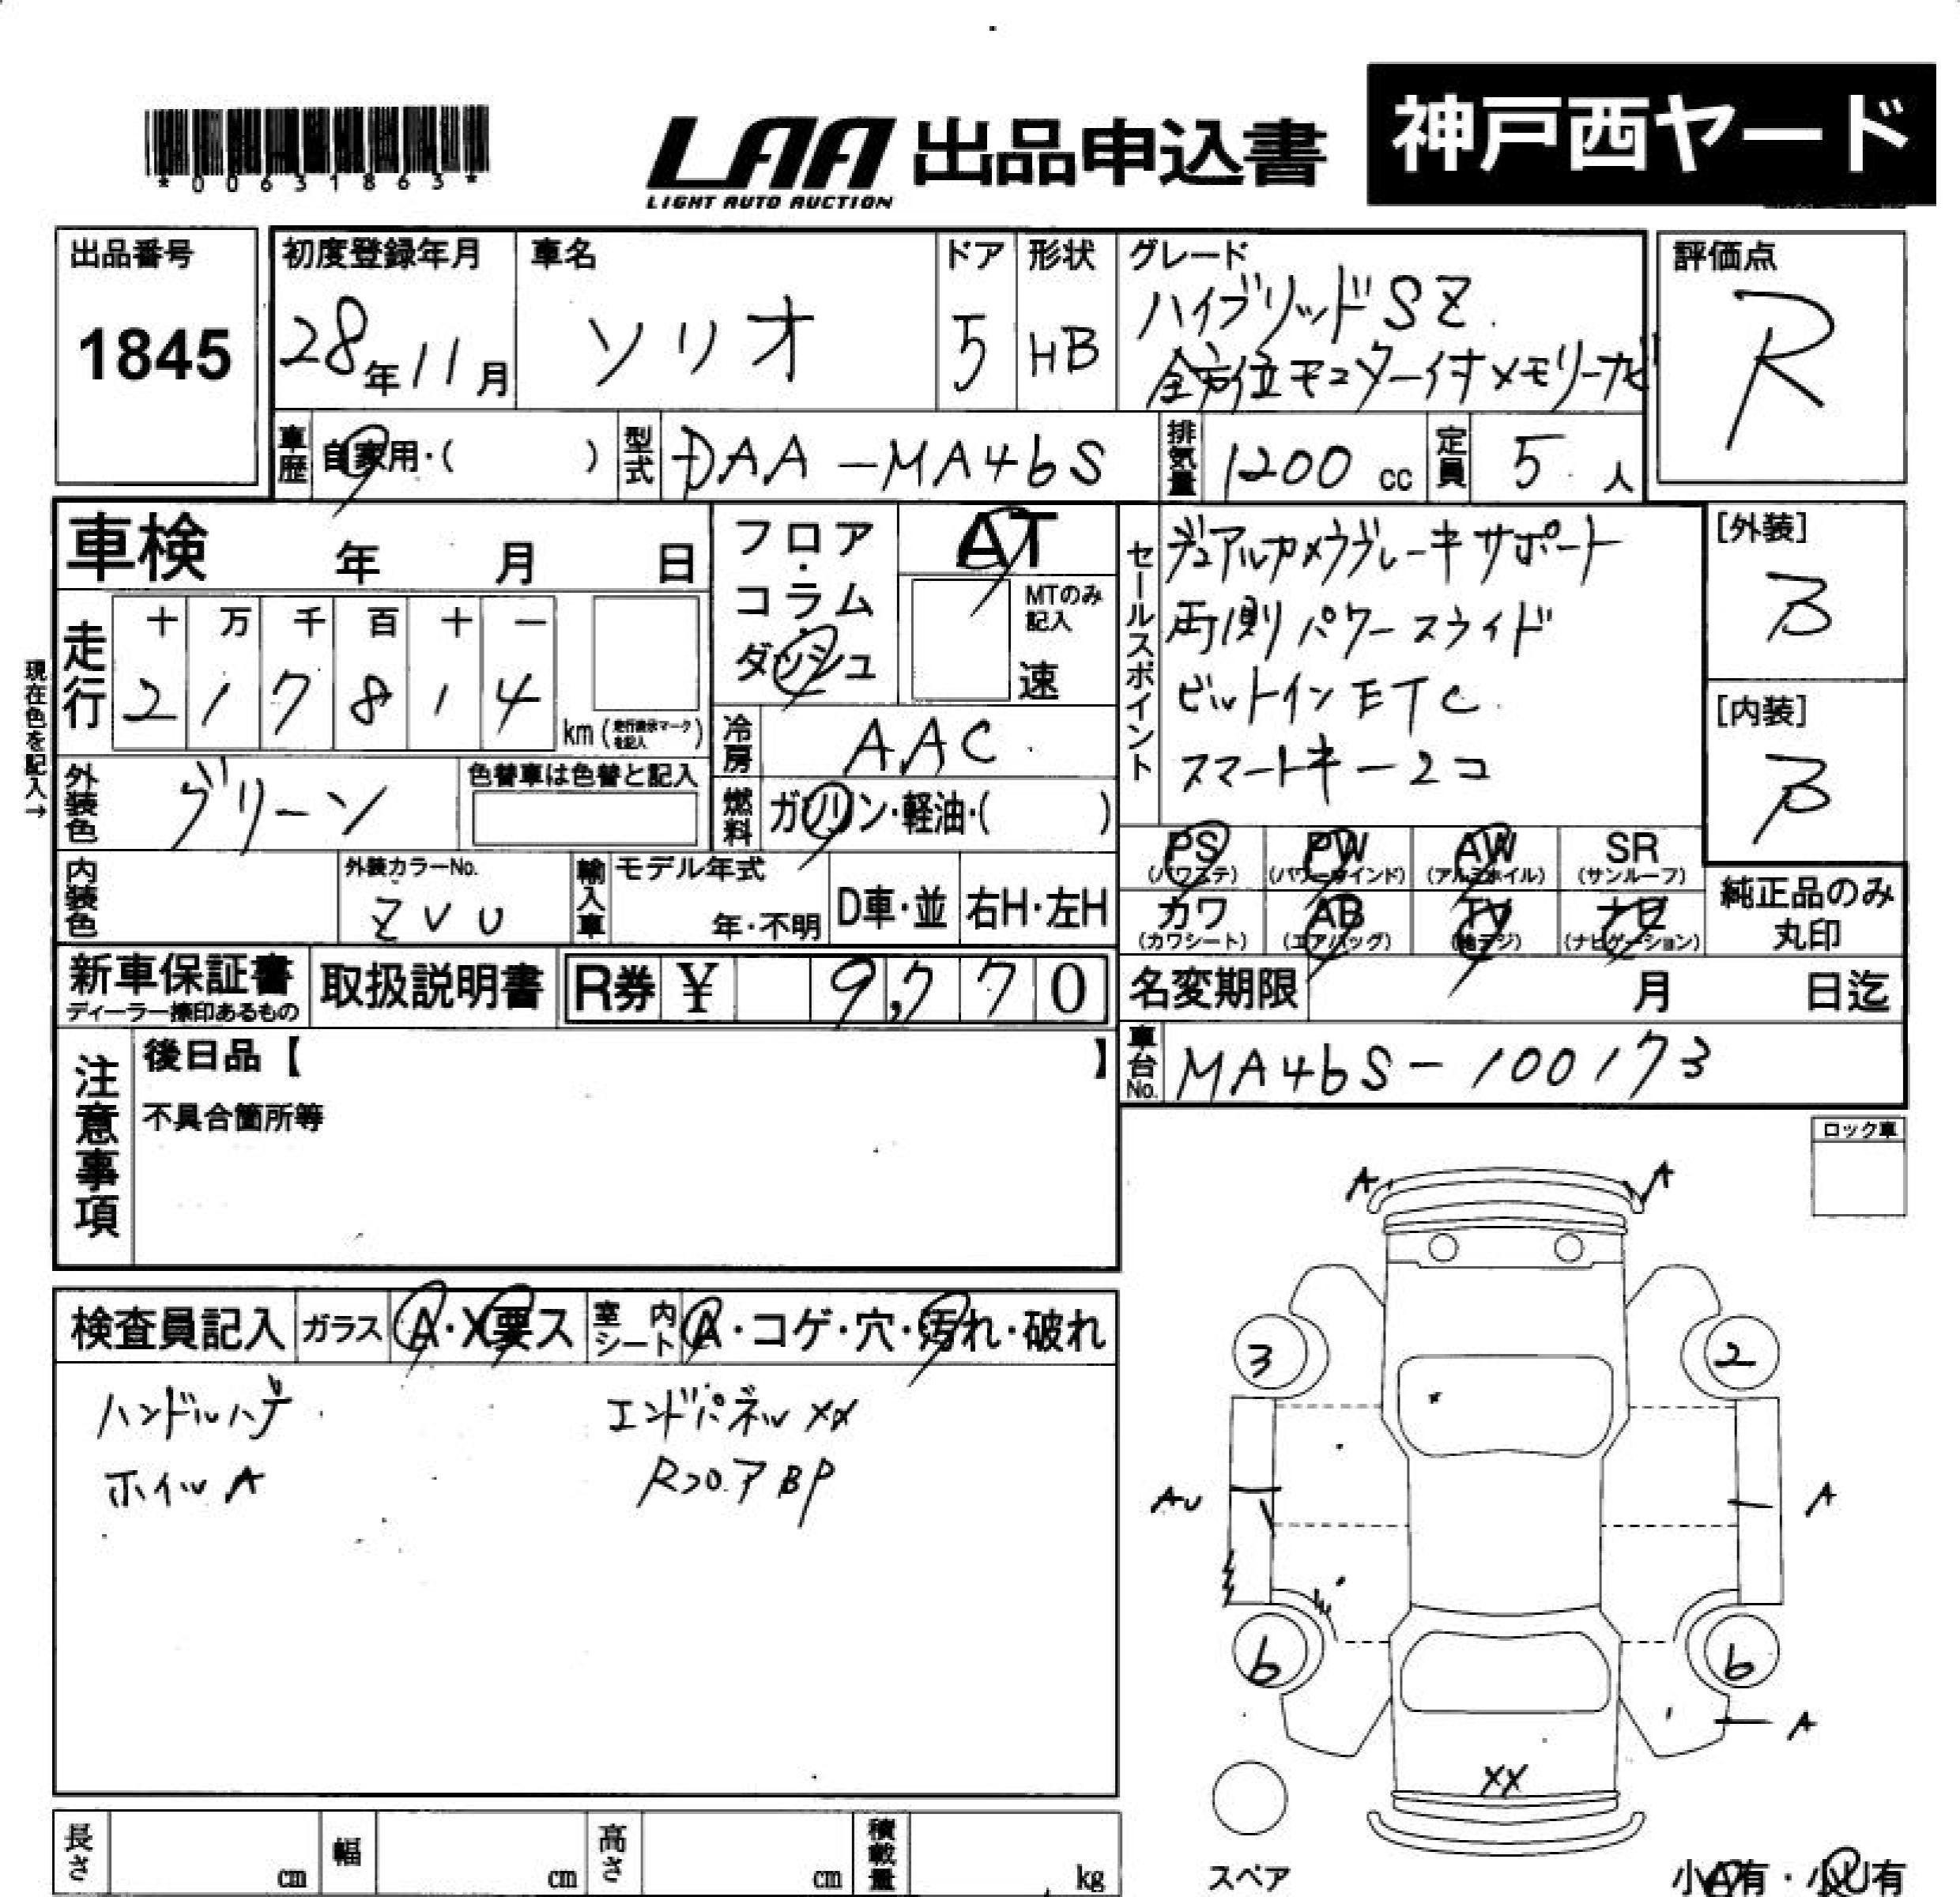 神戸西ヤード
*00631863*
LAA 出品申込書
LIGHT AUTO AUCTION
出品番号
1845
初度登録年月
28年11月
車名
ソリオ
ドア
5
形状
HB
グレード
ハイブリッドSZ
全方位モニター付メモリーナビ
評価点
R
車歴 自家用・( )
型式 DAA-MA46S
排気量 1200 cc
定員 5 人
車検 年 月 日
フロア・コラム・ダッシュ
AT
MTのみ記入
速
セールスポイント
デュアルカメラブレーキサポート
両側パワースライド
ビルトインETC
スマートキー2コ
[外装]
B
[内装]
B
現在色を記入→
走行
十 万 千 百 十 一
2 1 7 8 1 4
km (走行表示マークを記入)
冷房 AAC
外装色 グリーン
色替車は色替と記入
燃料 ガソリン・軽油・( )
PS (パワステ)
PW (パワーウインド)
AW (アルミホイル)
SR (サンルーフ)
カワ (カワシート)
AB (エアバッグ)
TV (地デジ)
ナビ (ナビゲーション)
純正品のみ丸印
内装色
外装カラーNo.
ZVU
輸入車
モデル年式
年・不明
D車・並
右H・左H
新車保証書
ディーラー捺印あるもの
取扱説明書
R券 ¥ 9,770
名変期限 月 日迄
車台No. MA46S-100173
注意事項
後日品【 】
不具合箇所等
ロック車
検査員記入
ガラス A・X要ス
室内シート A・コゲ・穴・汚れ・破れ
ハンドルハゲ
エンドパネルXX
ホイルA
RフロアBP
A A
3 2
AU A
6 6
A
XX
スペア
小A有・小U有
長さ cm
幅 cm
高さ cm
積載量 kg